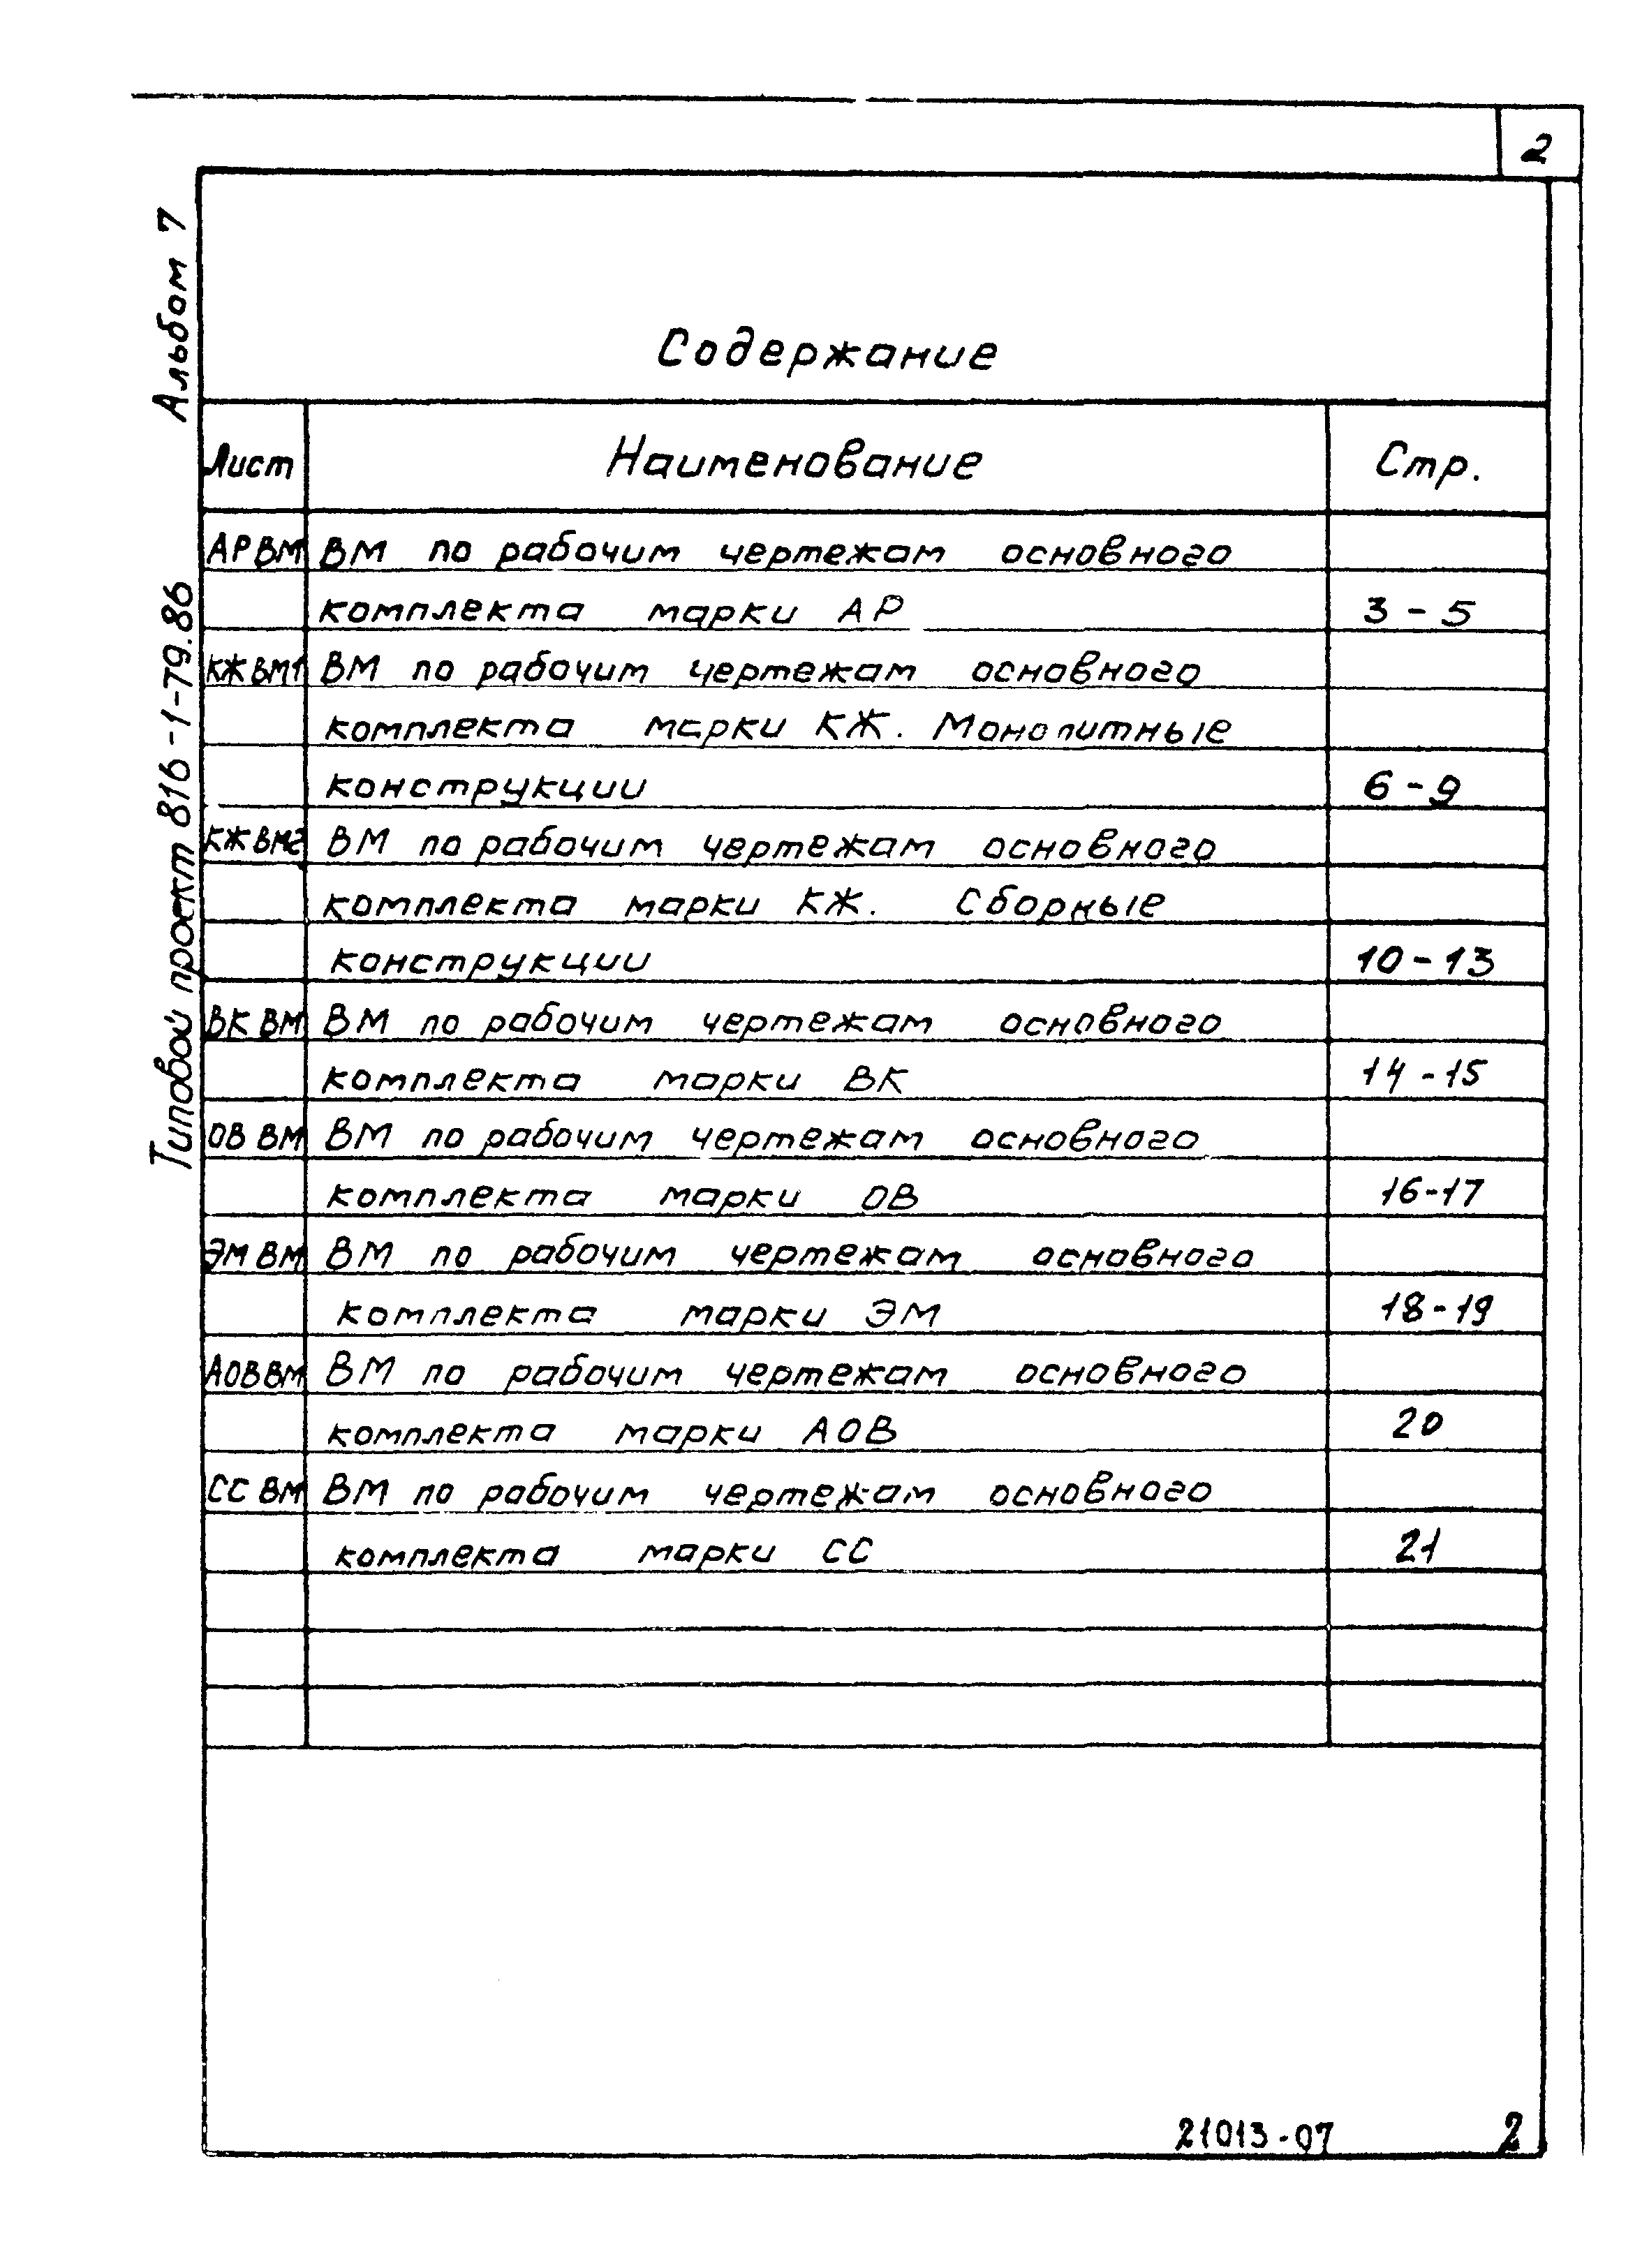 2
Альбом 7
Типовой проект 816-1-79.86
Содержание
Лист Наименование Стр.
АР ВМ ВМ по рабочим чертежам основного
комплекта марки АР 3-5
КЖ ВМ1 ВМ по рабочим чертежам основного
комплекта марки КЖ. Монолитные
конструкции 6-9
КЖ ВМ2 ВМ по рабочим чертежам основного
комплекта марки КЖ. Сборные
конструкции 10-13
ВК ВМ ВМ по рабочим чертежам основного
комплекта марки ВК 14-15
ОВ ВМ ВМ по рабочим чертежам основного
комплекта марки ОВ 16-17
ЭМ ВМ ВМ по рабочим чертежам основного
комплекта марки ЭМ 18-19
АОВ ВМ ВМ по рабочим чертежам основного
комплекта марки АОВ 20
СС ВМ ВМ по рабочим чертежам основного
комплекта марки СС 21
21013-07 2